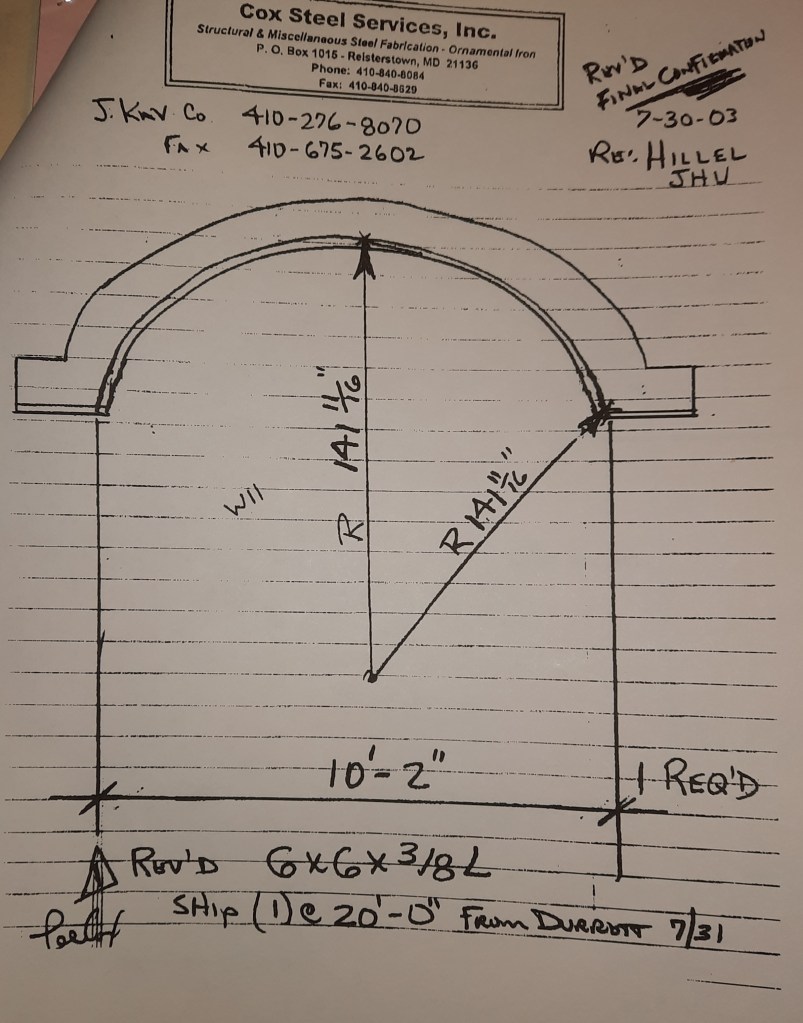 Cox Steel Services, Inc.
Structural & Miscellaneous Steel Fabrication - Ornamental Iron
P. O. Box 1015 - Reisterstown, MD 21136
Phone: 410-840-8084
Fax: 410-840-8529
REV'D
FINAL CONFIRMATION
7-30-03
RE: HILLEL
JHU
J. KNV Co. 410-276-8070
FAX 410-675-2602
R 141 11/16"
R 141 11/16"
W11
10'-2"
1 REQ'D
REV'D 6x6x3/8 L
SHIP (1) @ 20'-0" FROM DURRETT 7/31